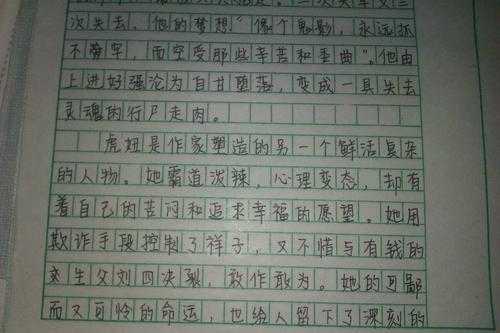 次失去，他的梦想“像个鬼影，永远抓
不牢，而空受那些辛苦和委曲”。他由
上进好强沦为自甘堕落，变成一具失去
灵魂的行尸走肉。
虎妞是作家塑造的另一个鲜活复杂
的人物。她霸道泼辣，心理变态，却有
着自己的苦闷和追求幸福的愿望。她用
欺诈手段控制了祥子，又不惜与有钱的
亲生父刘四决裂，敢作敢为。她的可鄙
而又可怜的命运，也给人留下了深刻的